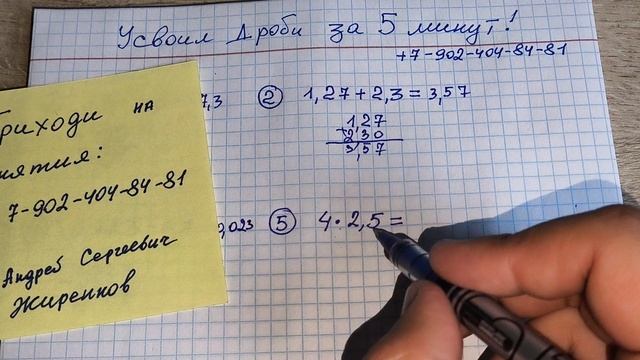 Усвоил Дроби за 5 минут!
+7-902-404-84-81
7,3 ② 1,27+2,3=3,57
1,27
+2,30
3,57
,023 ⑤ 4·2,5=
Приходи на
нятия:
7-902-404-84-81
Андрей Сергеевич
Жиренков